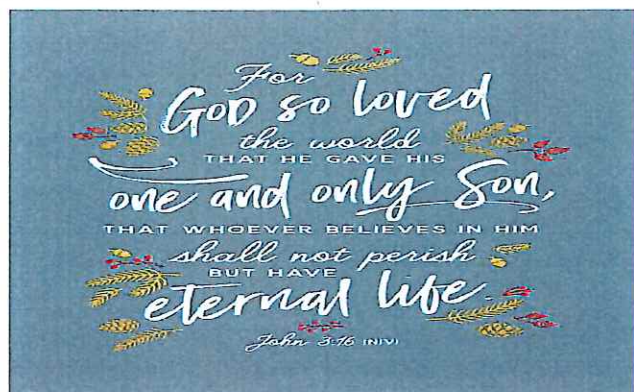 For
GOD so loved
the world
THAT HE GAVE HIS
one and only Son,
THAT WHOEVER BELIEVES IN HIM
shall not perish
BUT HAVE
eternal life
John 3:16 (NIV)